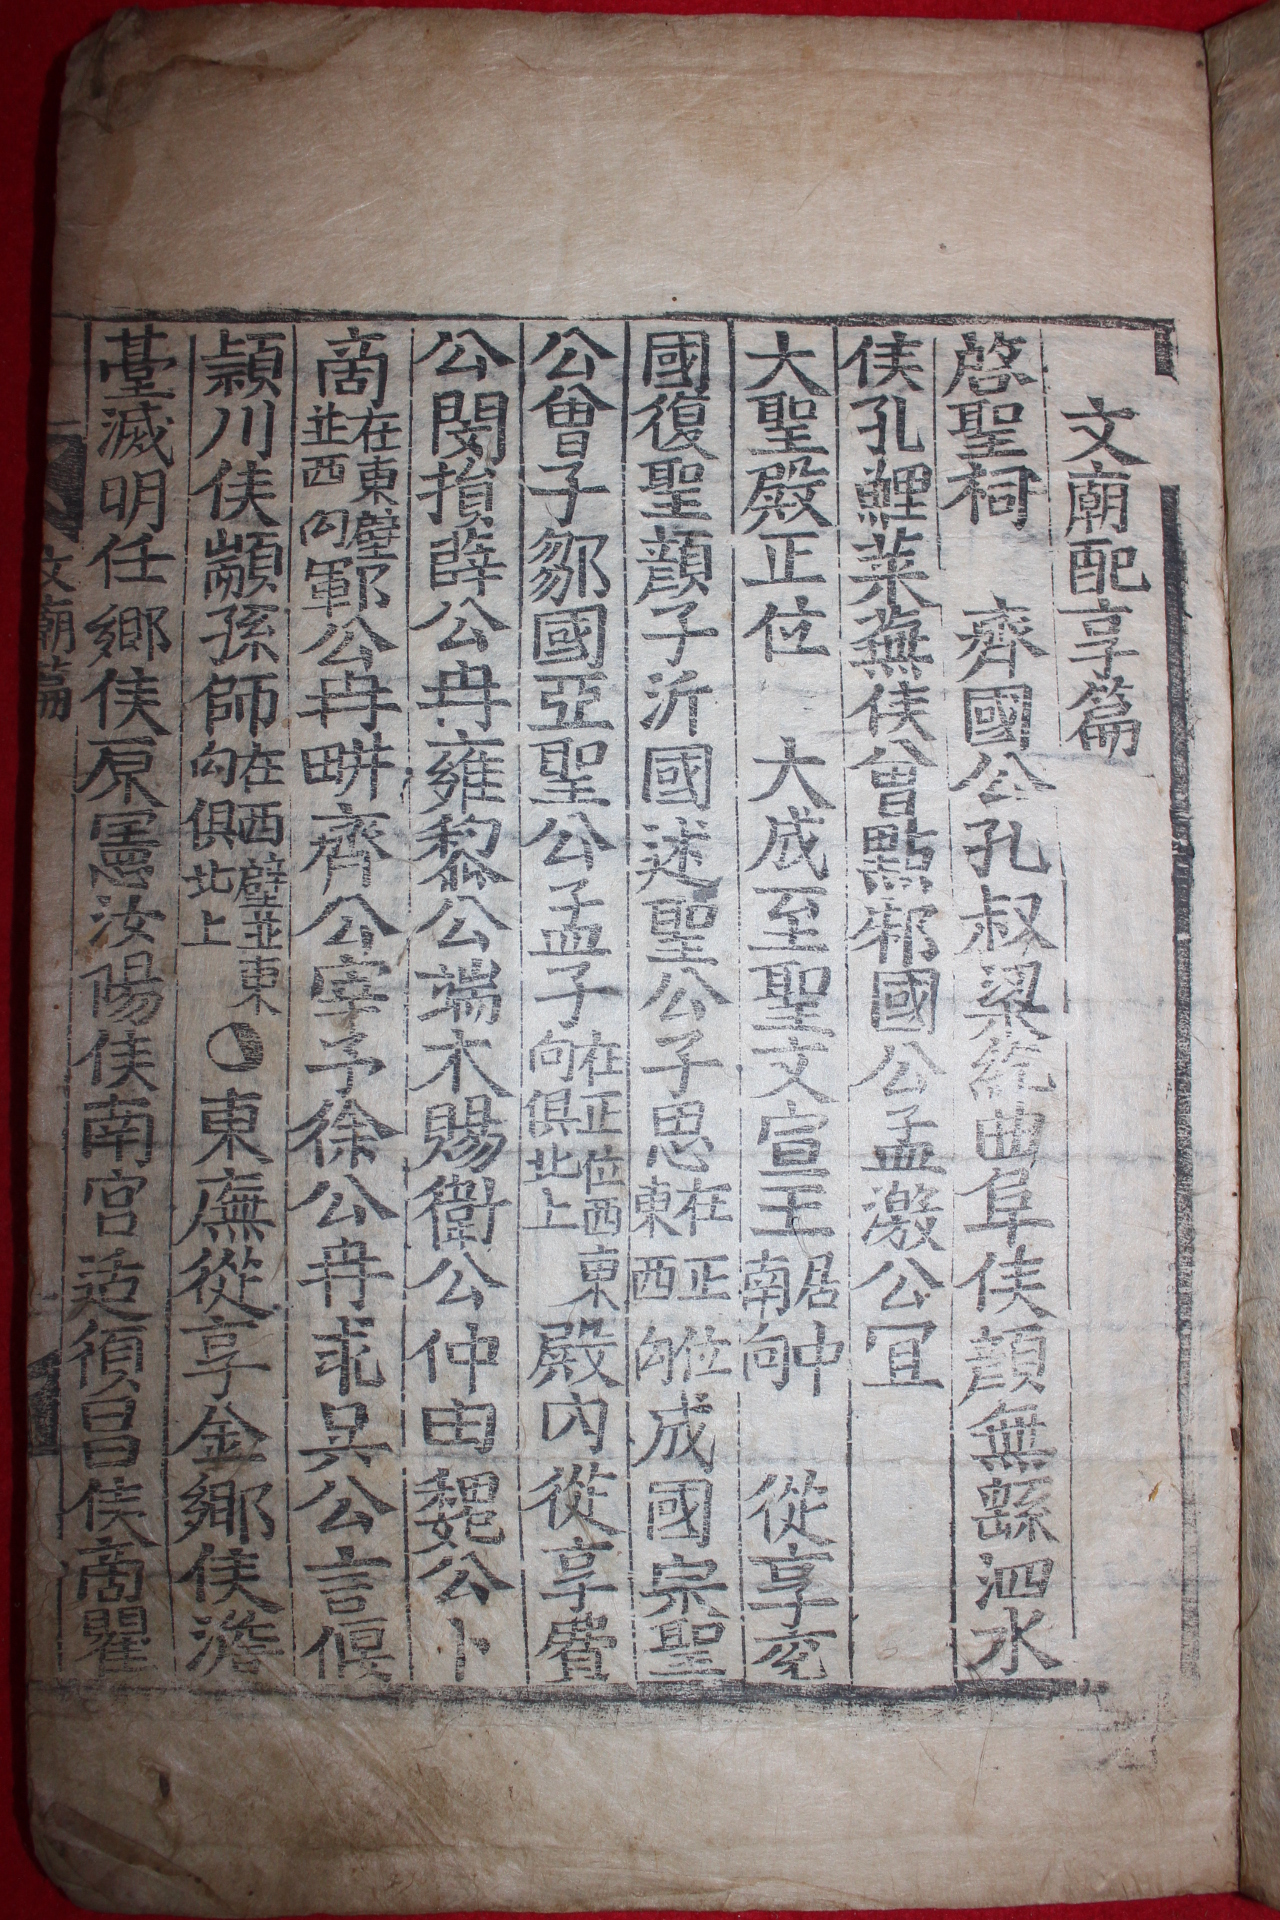 文廟配享篇
啓聖祠 齊國公孔叔梁紇曲阜侯顔無繇泗水
侯孔鯉萊蕪侯曾點邾國公孟激公冝
大聖殿正位 大成至聖文宣王居中南向 從享兗
國復聖顔子沂國述聖公子思在正位東西向成國宗聖
公曾子鄒國亞聖公孟子在正位西東向俱北上殿內從享費
公閔損薛公冉雍黎公端木賜衛公仲由魏公卜
商在東壁並西向鄆公冉畊齊公宰予徐公冉求吳公言偃
頴川侯顓孫師在西壁並東向俱北上○東廡從享金鄉侯澹
臺滅明任鄉侯原憲汝陽侯南宮适須昌侯商瞿
文廟篇